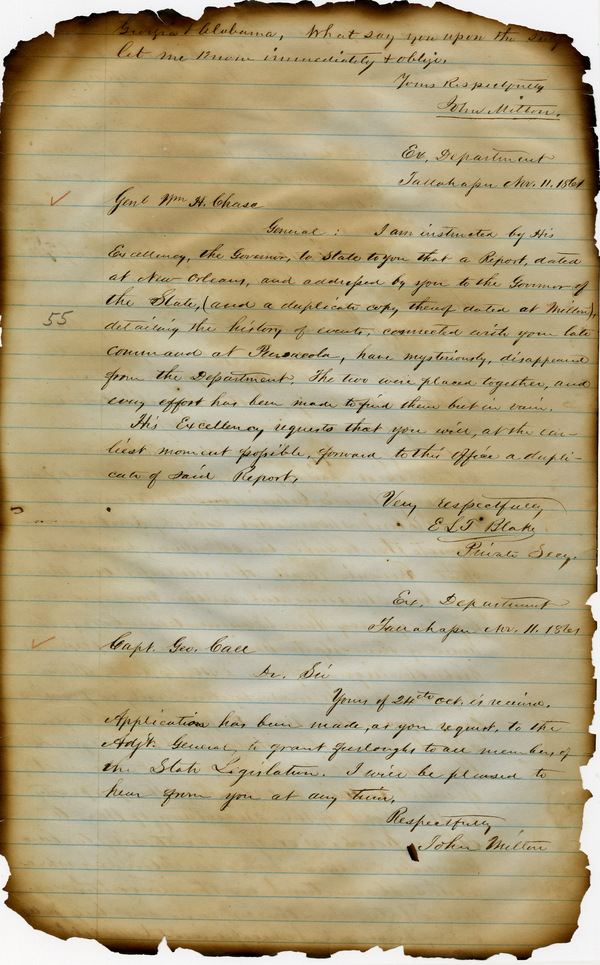 Georgia & Alabama. What say you upon the
let me Know immediately & oblige.
Yours Respectfully
John Milton.
Ex. Department
Tallahassee Nov. 11. 1861
Genl Wm H. Chase
General: I am instructed by His
Excellency, the Governor, to State to you that a Report, dated
at New Orleans, and addressed by you to the Governor of
the State, (and a duplicate copy thereof dated at Milton),
detailing the history of events, connected with your late
command at Pensacola, have mysteriously, disappeared
from the Department. The two were placed together, and
every effort has been made to find them but in vain.
55
His Excellency requests that you will, at the ear-
liest moment possible, forward to this Office a dupli-
cate of said Report.
Very respectfully
E L T Blake
Private Secy.
Ex. Department
Tallahassee Nov. 11. 1861
Capt. Geo. Call
Dr. Sir
Yours of 24th Oct. is receive.
Application has been made, as you request, to the
Adjt. General, to grant furloughs to all members of
the State Legislation. I will be pleased to
hear from you at any time.
Respectfully
John Milton